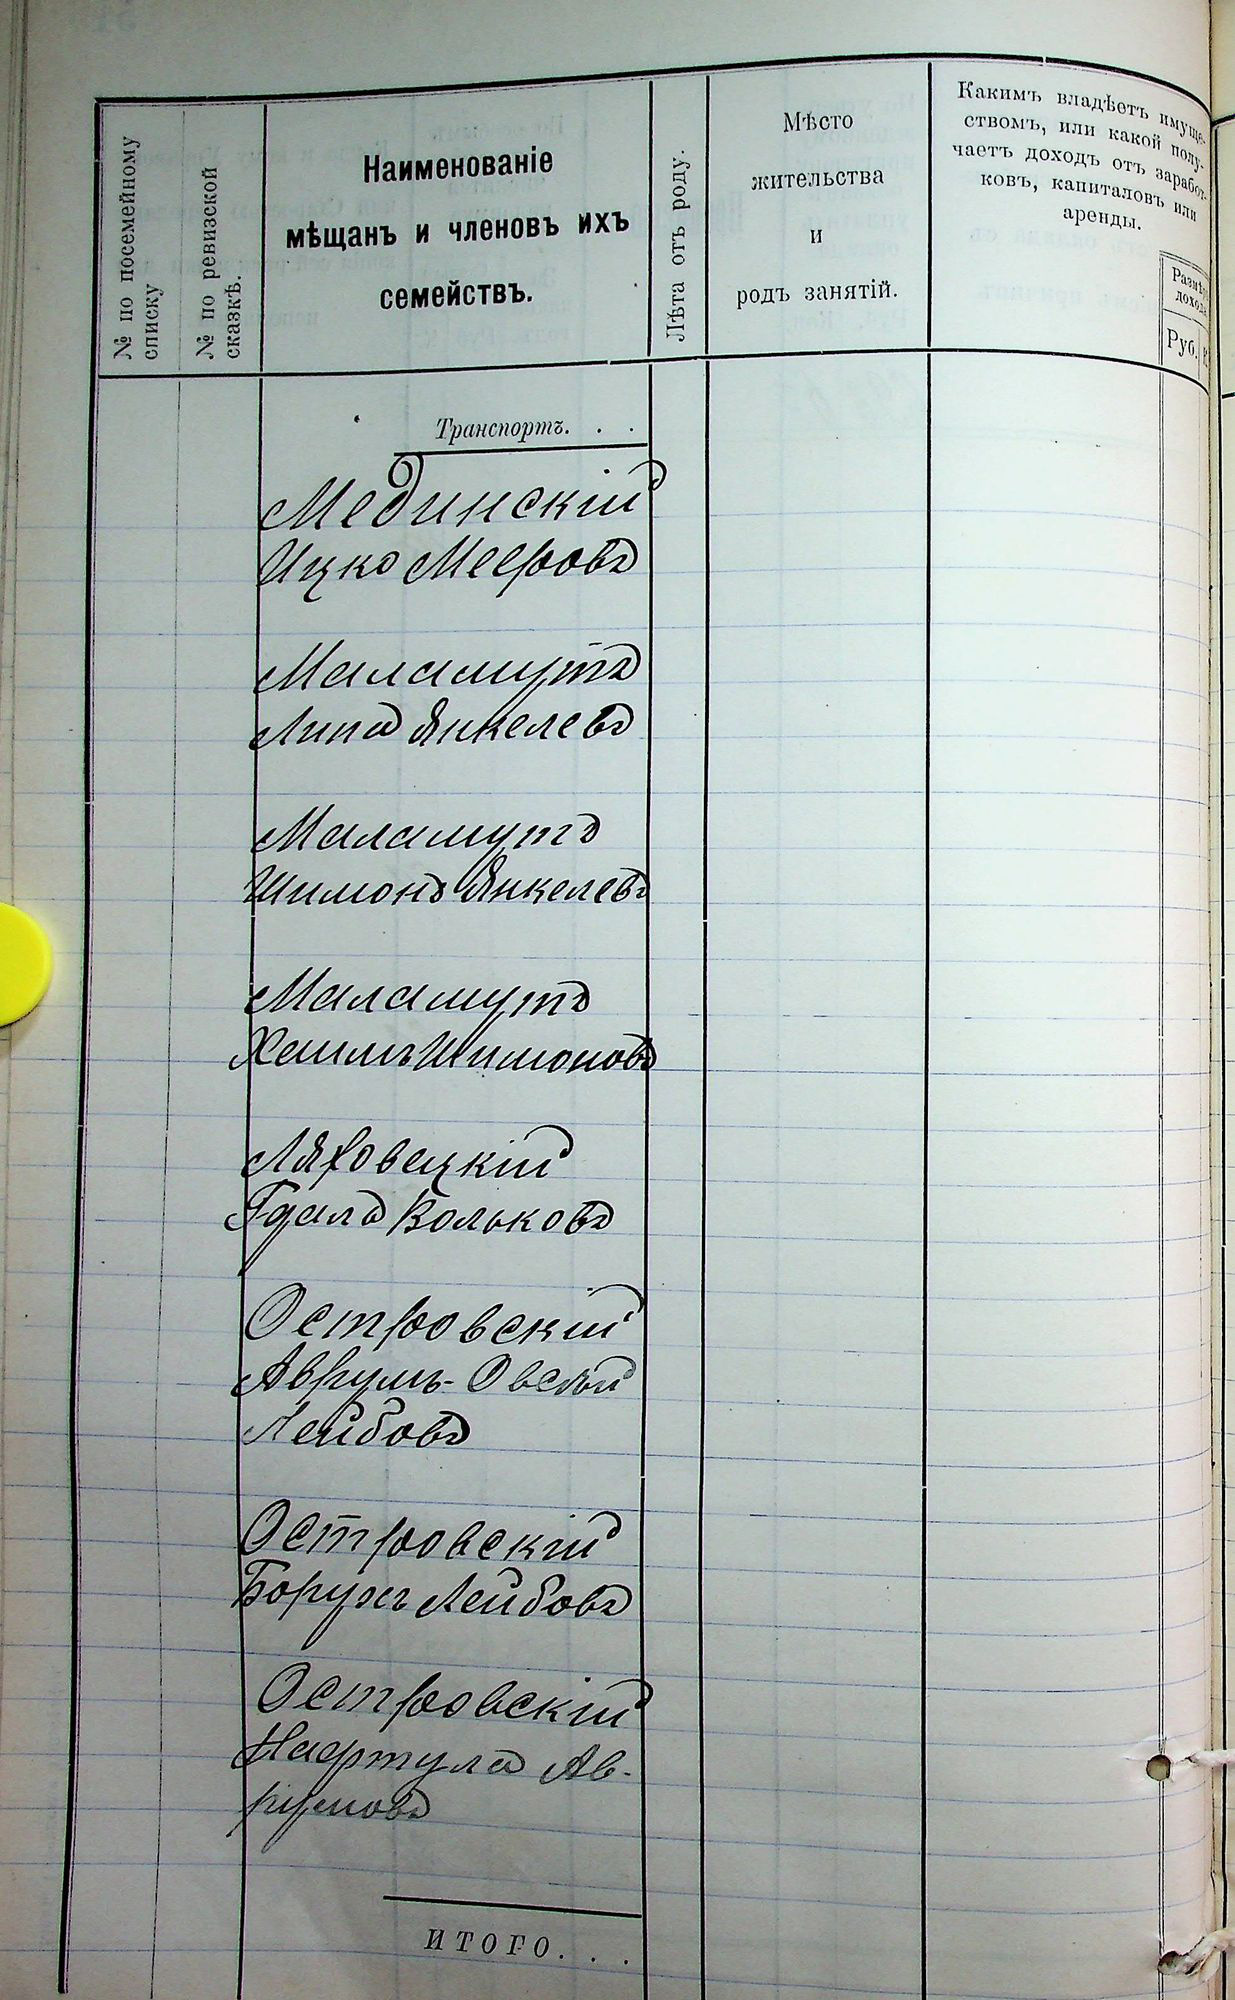 № по посемейному
списку
№ по ревизской
сказкѣ.
Наименованіе
мѣщанъ и членовъ ихъ
семействъ.
Лѣта отъ роду.
Мѣсто
жительства
и
родъ занятій.
Какимъ владѣетъ имуще-
ствомъ, или какой полу-
чаетъ доходъ отъ заработ-
ковъ, капиталовъ или
аренды.
Размѣръ
дохода
Руб.
Транспортъ. . .
Мединскій
Ицко Мееровъ
Маламутъ
Липа Янкелевъ
Маламутъ
Шимонъ Янкелевъ
Маламутъ
Хаимъ Шимоновъ
Ляховецкій
Гдаля Вольковъ
Островскій
Аврумъ-Овсѣй
Лейбовъ
Островскій
Борухъ Лейбовъ
Островскій
Нафтула Ав-
румовъ
ИТОГО. . .